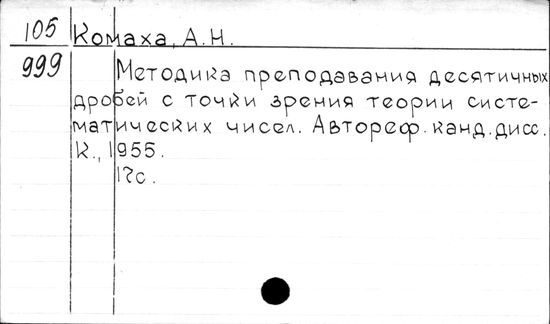 105 Комаха, А.Н.
999 Методика преподавания десятичных
дробей с точки зрения теории систе-
матических чисел. Автореф. канд. дисс.
К., 1955.
17с.